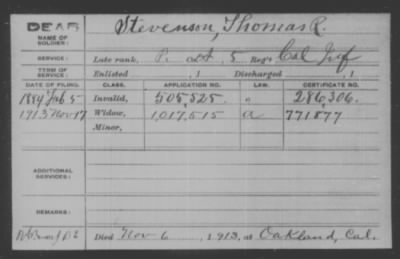 DEAD
NAME OF SOLDIER: Stevenson, Thomas R.
SERVICE: Late rank, P. 5 Reg't Cal Inf
TERM OF SERVICE: Enlisted , 1 Discharged , 1
DATE OF FILING. CLASS. APPLICATION NO. LAW. CERTIFICATE NO.
5 Invalid, 505,525 " 286,306.
1913 Nov 17 Widow, 1,017,515 a 771877
Minor,
ADDITIONAL SERVICES:
REMARKS:
Died Nov 6 , 1913, at Oakland, Cal.